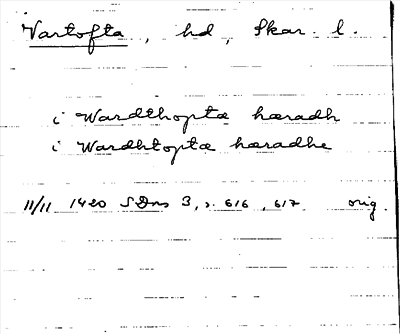 Vartofta, hd, Skar. l.
i Wardthopta hæradh
i Wardhtopta hæradhe
11/11 1420 SDns 3, s. 616, 617. orig.